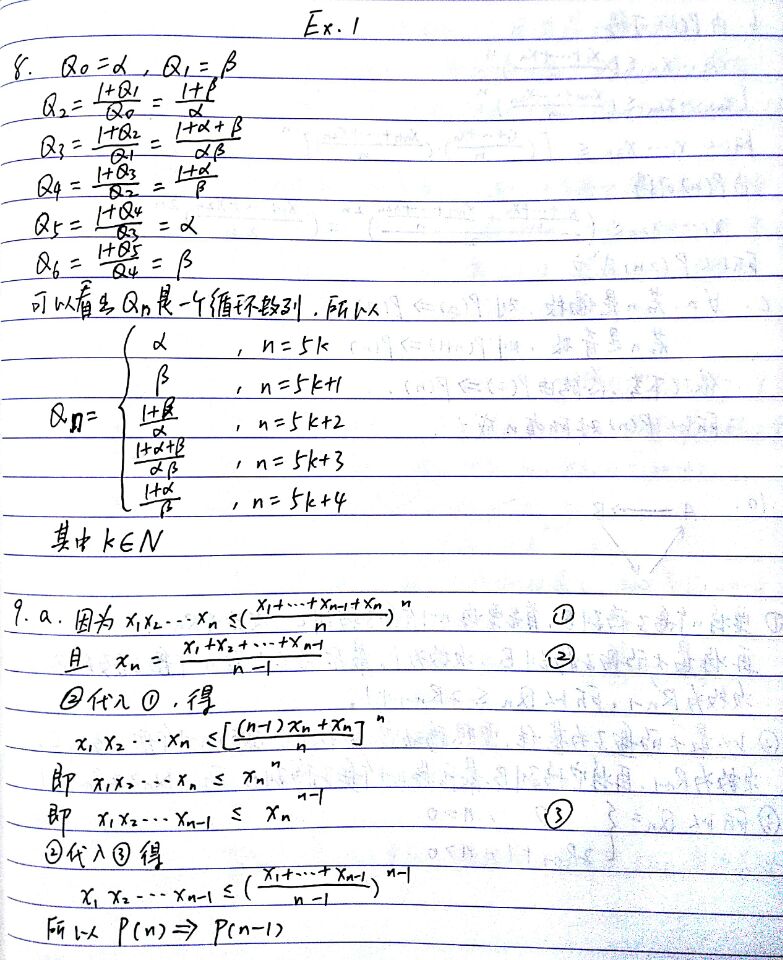 Ex. 1
8. Q₀ = α , Q₁ = β
Q₂ = (1+Q₁)/Q₀ = (1+β)/α
Q₃ = (1+Q₂)/Q₁ = (1+α+β)/(αβ)
Q₄ = (1+Q₃)/Q₂ = (1+α)/β
Q₅ = (1+Q₄)/Q₃ = α
Q₆ = (1+Q₅)/Q₄ = β
可以看出 Qₙ是一个循环数列.所以
α , n = 5k
β , n = 5k+1
Qₙ = { (1+β)/α , n = 5k+2
(1+α+β)/(αβ) , n = 5k+3
(1+α)/β , n = 5k+4
其中 k∈N
9. a. 因为 x₁x₂⋯xₙ ≤ ((x₁+⋯+xₙ₋₁+xₙ)/n)ⁿ ①
且 xₙ = (x₁+x₂+⋯+xₙ₋₁)/(n-1) ②
②代入①,得
x₁x₂⋯xₙ ≤ [((n-1)xₙ+xₙ)/n]ⁿ
即 x₁x₂⋯xₙ ≤ xₙⁿ
即 x₁x₂⋯xₙ₋₁ ≤ xₙⁿ⁻¹ ③
②代入③得
x₁x₂⋯xₙ₋₁ ≤ ((x₁+⋯+xₙ₋₁)/(n-1))ⁿ⁻¹
所以 P(n) ⇒ P(n-1)